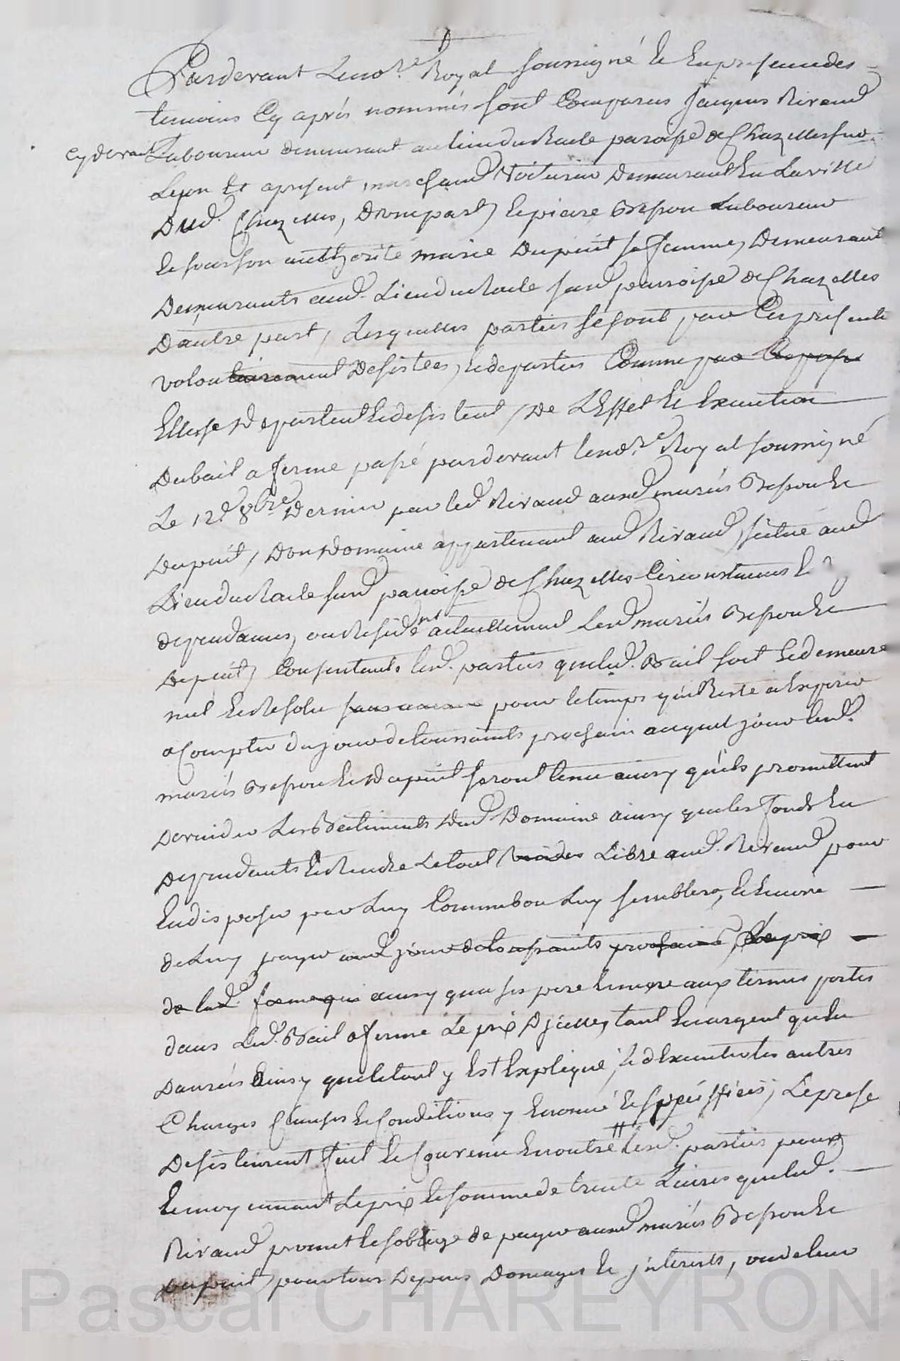 Pardevant Le no.re Royal soussigné & En presence des
temoins Cy aprés nommés sont Comparus Jacques Riraud
cydevant Laboureur demeurant au lieu du Racle paroisse de Chazelles sur
Lyon Et apresent marchand Voiturier Demeurant En La ville
Dud. Chazelles, D'une part, & pierre Besson Laboureur
& sous son authorité marie Dupuit sa femme, Demeurant
Demeurants aud. Lieu du Racle susd. parroisse de Chazelles
D'autre part, Lesquelles parties se sont par Ces presentes
volontairement Desistées, & departies Comme par
Elles se Departent & desistent, De L'Effet & Execution
Du bail a ferme passé pardevant le no.re Royal soussigné
Le 12.e 8bre Dernier par led. Riraud ausd. mariés Besson &
Dupuit, D'un Domaine appartenant aud. Riraud, situé aud.
Lieu du Racle susd. paroisse de Chazelles Circonstances &
dependances, ou Resident actuellement Lesd. mariés Besson &
Dupuit, Consentants lesd. parties que led. Bail soit & demeure
nul & Resolu pour le temps qu'il Reste a Expirer
a Compter du jour de toussaints prochain auquel jour lesd.
mariés Besson & Dupuit seront tenu ainsy qu'ils promettent
De vuider Les Batiments Dud. Domaine ainsy que les fonds En
Dependants & Rendre Le tout vuides Libre aud. Riraud pour
En disposer par Luy Comme bon Luy semblera, & Encore
de Luy payer aud. jour de toussaints prochain, Le prix
de lad. ferme qui ainsy que ses pere & mere aux termes portés
dans Led. Bail a ferme Le prix D'jcelle, tant En argent qu'En
Danrées Ainsy que le tout y Est Expliqué, & d'Executer les autres
Charges Clauses & Conditions y Enoncé & spéciffiées, Le present
Desistement fait & Convenu En outre Entre lesd. parties pour
& moyennant Le prix & somme de trente Livres que led.
Riraud promet & s'oblige de payer ausd. mariés Besson &
Dupuit, pour tous Depens Domages & jnterests,
Pascal CHAREYRON